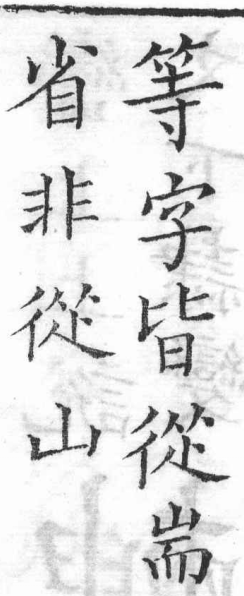 等字皆從耑
省非從山